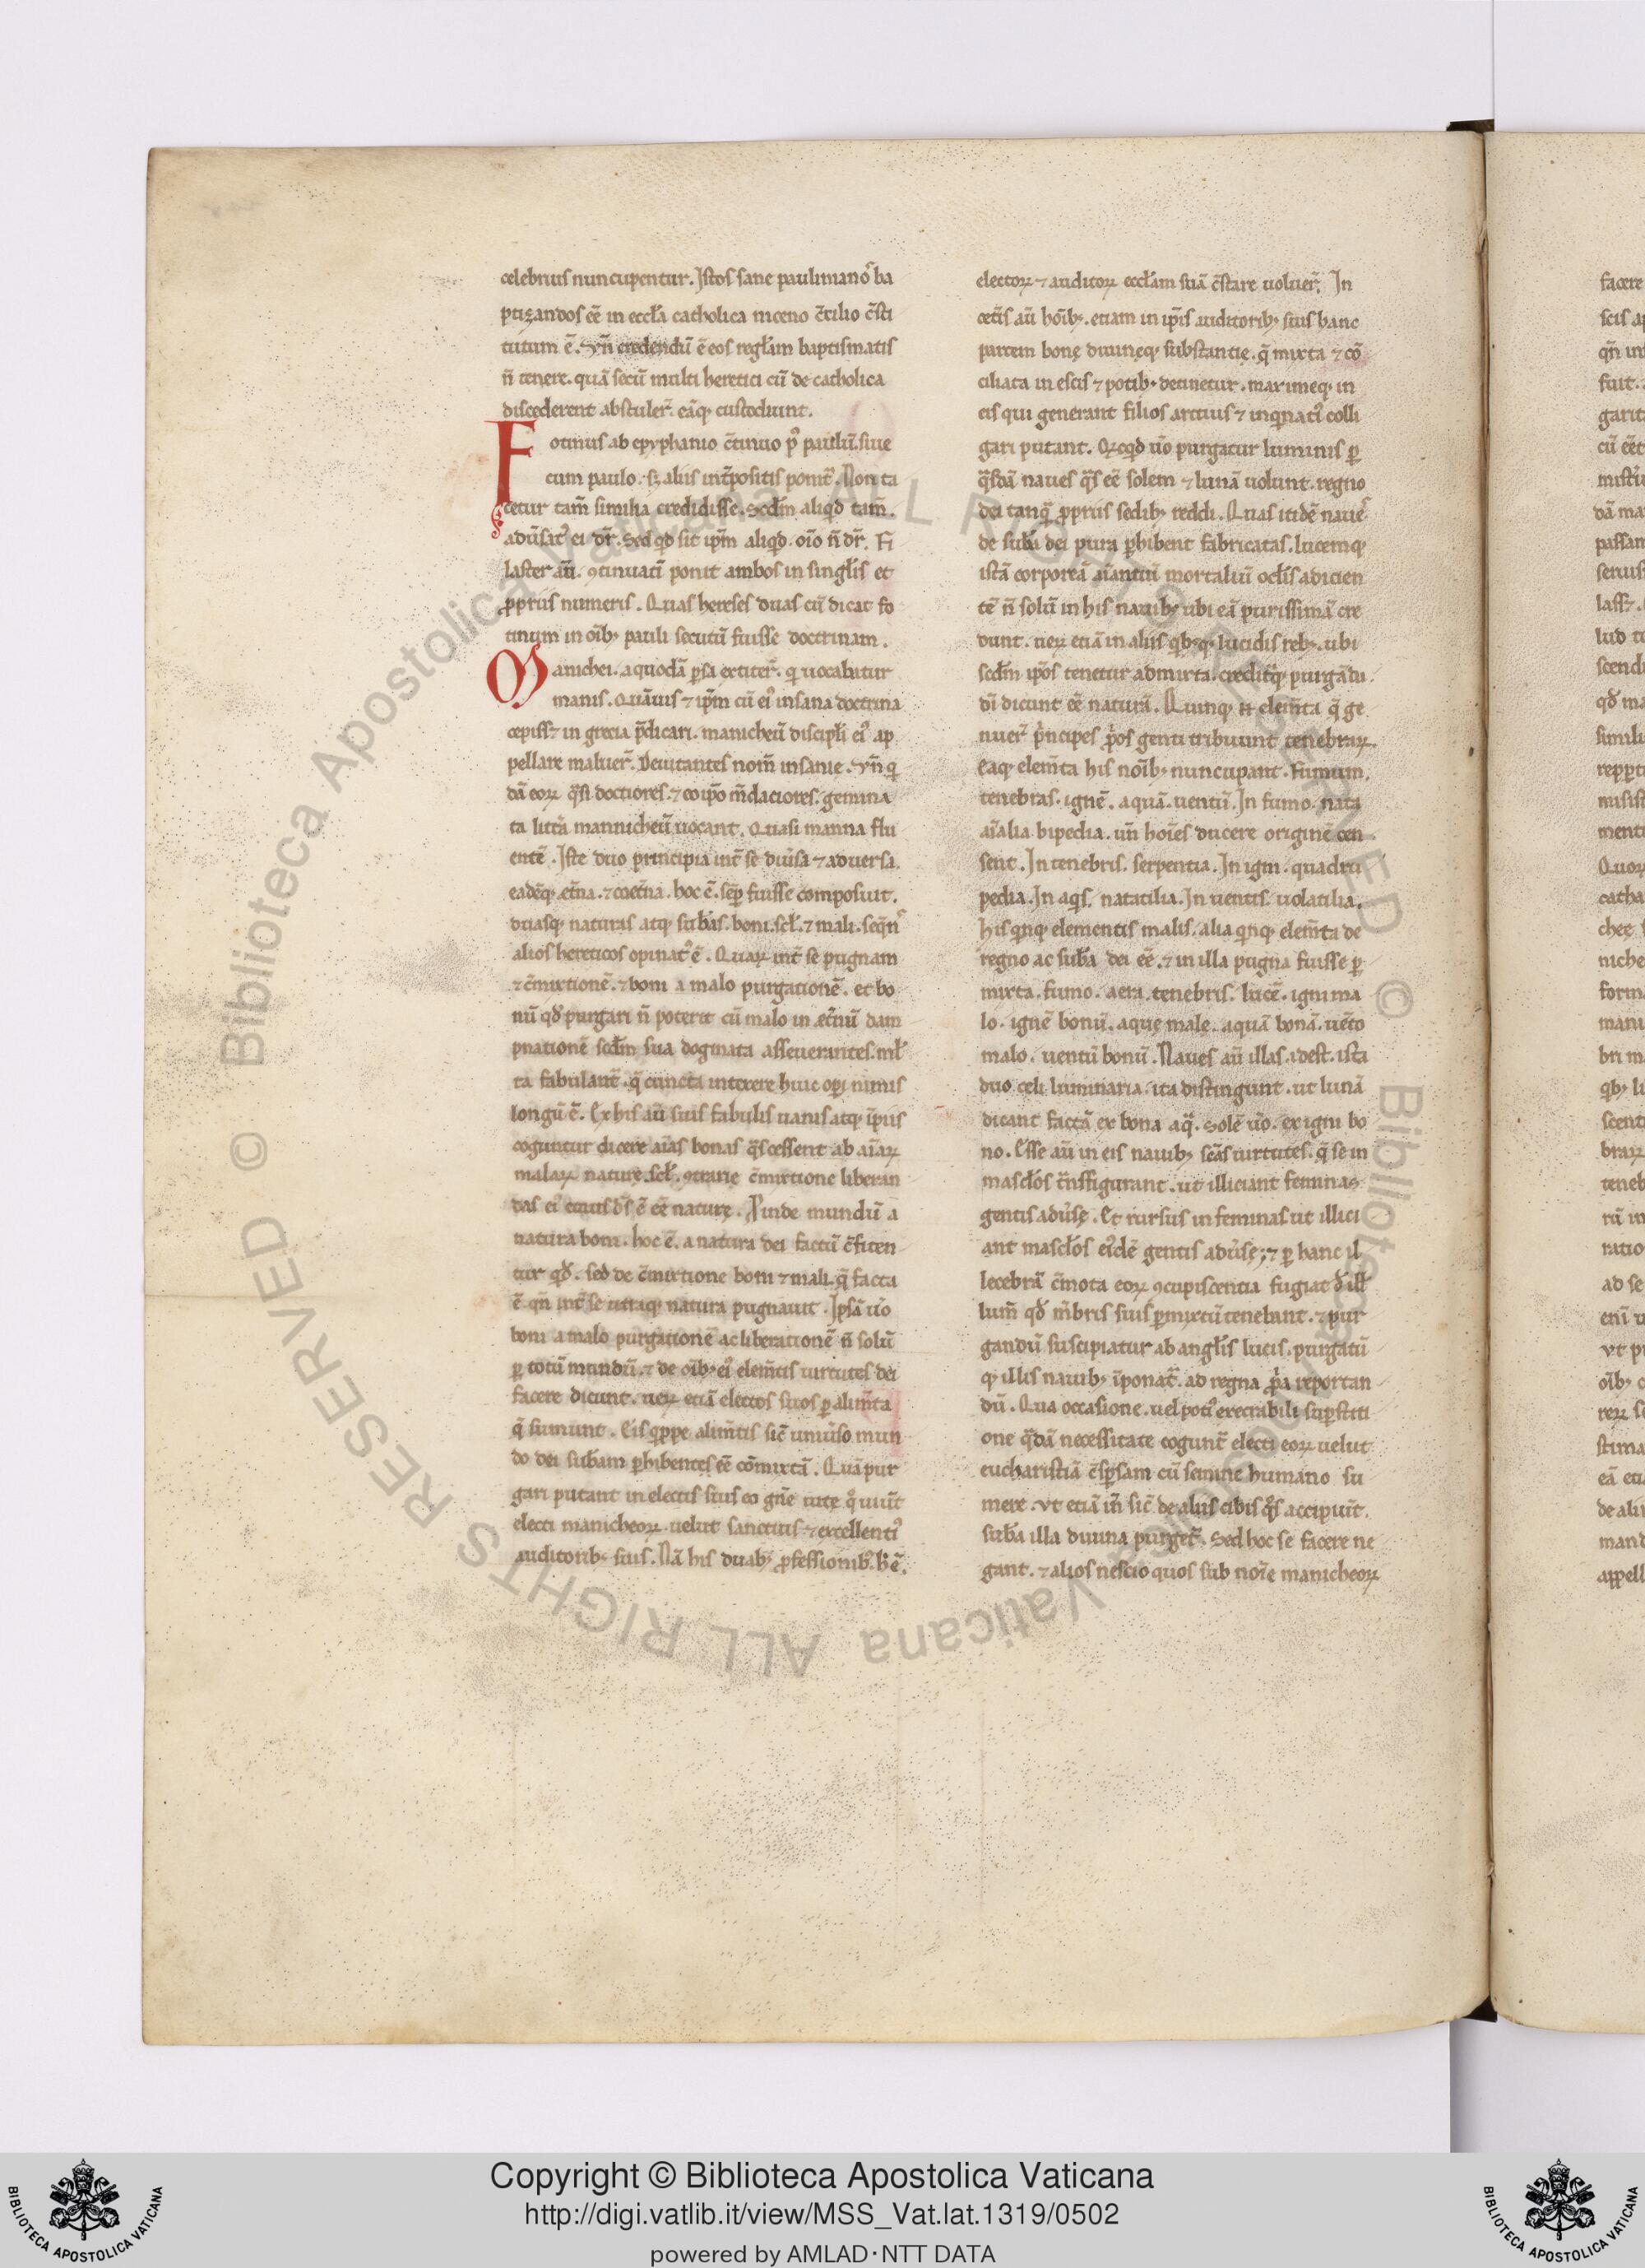 celebrius nuncupentur. Istos sane paulianos ba
ptizandos eē in eccl̄a catholica niceno c̄cilio c̄sti
tutum ē. Vn̄ credendū ē eos regl̄am baptismatis
n̄ tenere. quā secū multi heretici cū de catholica
discederent abstuler̄. eāq; custodiunt.
Fotinus ab epyphanio c̄tinuo p᷒ paulū. siue
cum paulo. sꝫ aliis int̄positis ponit᷒. Non ta
cetur tam̄ similia credidisse. Scd̄m aliqd tam̄.
adūsat᷒ ei dr̄. Sed qd sit ip̄m aliqd. oīo n̄ dr̄. Fi
laster aū. ꝯtinuatī ponit ambos in singl̄is et
ꝓpriis numeris. Quas hereses duas cū dicat fo
tinum in oīb; pauli secutū fuisse doctrinam.
Manichei. a quodā ꝑsa extiter̄. q uocabatur
manis. Quāuis ⁊ ip̄m cū ei᷒ insana doctrina
cepiss⁊ in grecia p̄dicari. manicheū discipl̄i ei᷒ ap
pellare maluer̄. Deuitantes nom̄ insanie. Vn̄ q
dā eoꝝ q̄si doctiores. ⁊ eo ip̄o m̄daciores. gemina
ta litt̄a mannicheū uocant. Quasi manna flu
entē. Iste duo principia int̄ se diūsa ⁊ aduersa.
eadēq; et̄na. ⁊ coet̄na. hoc ē. sēp fuisse composuit.
duasq; naturas atq; sub̄as. boni. scl̄. ⁊ mali. seq̄ns
alios hereticos opinat᷒ ē. Quaꝝ int̄ se pugnam
⁊ c̄mixtionē. ⁊ boni a malo purgationē. et bo
nū qd̄ purgari n̄ poterit cū malo in et̄nū dam
pnationē scd̄m sua dogmata asseuerantes. ml̄
ta fabulant̄. q̄ cuncta intexere huic opi nimis
longū ē. Ex his aū suis fabulis uanis atq; īpiis
coguntur dicere aīas bonas q̄s censent ab aīaꝝ
malaꝝ nature. scl̄. ꝯtrarie c̄mixtione liberan
das ei᷒ cuius d̄s ē eē nature. Proinde mundū a
natura boni. hoc ē. a natura dei factū c̄fiten
tur qd̄. sed de c̄mixtione boni ⁊ mali. q̄ facta
ē qn̄ int̄ se utraq; natura pugnauit. Ipsā uō
boni a malo purgationē ac liberationē n̄ solū
ꝑ totū mundū. ⁊ de oīb; ei᷒ elem̄tis uirtutes dei
facere dicunt. ueꝝ etiā electos suos ꝑ alim̄ta
q̄ sumunt. Eis q̄ppe alim̄tis sic̄ uniūso mun
do dei sub̄am ꝑhibentes eē cōmixtā. Quā pur
gari putant in electis suis eo gn̄e uite q᷒ uiūt
electi manicheoꝝ. uelut sanctius ⁊ excellenti᷒
auditorib; suis. Nā his duab; ꝓfessionib;. h᷒ ē.
electoꝝ ⁊ auditoꝝ eccl̄am suā c̄stare uoluer̄. In
cet̄is aū hoīb;. etiam in ip̄is auditorib; suis hanc
partem bone diuineq; substantie. q̄ mixta ⁊ cō
ciliata in escis ⁊ potib; detinetur. maximeq; in
eis qui generant filios arctius ⁊ inqnati᷒ colli
gari putant. Qcqd uō purgatur luminis ꝑ
q̄sdā naues q̄s eē solem ⁊ lunā uolunt. regno
dei tanq̄ ꝓpriis sedib; reddi. Quas itidē naues
de sub̄a dei pura ꝑhibent fabricatas. lucemq;
istā corporeā aīantiū mortaliū ocl̄is adicien
tē n̄ solū in his nauib; ubi eā purissimā cre
dunt. ueꝝ etiā in aliis qb;q; lucidis reb;. ubi
scd̄m ip̄os tenetur admixta. credit᷒q; purgāda.
dī dicunt eē naturā. Quinq; n̄ elem̄ta q̄ ge
nuer̄ p̄ncipes ꝓprios genti tribuunt tenebraꝝ.
Eaq; elem̄ta his noīb; nuncupant. Fumum.
tenebras. ignē. aquā. uentū. In fumo. nata
aīalia bipedia. un̄ hoīes ducere originē cen
sent. In tenebris. serpentia. In igni. quadru
pedia. In aqis. natatilia. In uentis. uolatilia.
His qnq; elementis malis. alia qnq; elem̄ta de
regno ac sub̄a dei eē. ⁊ in illa pugna fuisse ꝑ
mixta. fumo. aera. tenebris. lucē. igni ma
lo. ignē bonū. aque male. aquā bonā. uēto
malo. uentū bonū. Naues aū illas. idest. ista
duo celi luminaria. ita distingunt. ut lunā
dicant factā ex bona aq̄. Solē uō. ex igni bo
no. Esse aū in eis nauib; scās uirtutes. q̄ se in
mascl̄os t̄nsfigurant. ut illiciant feminas
gentis adūse. Et rursus in feminas ut illici
ant mascl̄os ei᷒dē gentis adūse; ⁊ ꝑ hanc il
lecebrā c̄mota eoꝝ ꝯcupiscentia fugiat d̄ ill̄
lum̄ qd̄ m̄bris suis ꝑmixtū tenebant. ⁊ pur
gandū suscipiatur ab angl̄is lucis. purgatū
q; illis nauib; īponat̄. ad regna ꝓpria reportan
dū. Qua occasione. uel poti᷒ execrabili suꝑstiti
one q̄dā necessitate cogunt̄ electi eoꝝ uelut
eucharistiā c̄sꝑsam cū semine humano su
mere. Vt etiā īn̄ sic̄ de aliis cibis q̄s accipiūt.
sub̄a illa diuina purget̄. Sed hoc se facere ne
gant. ⁊ alios nescio quos sub noīe manicheoꝝ
Copyright © Biblioteca Apostolica Vaticana
http://digi.vatlib.it/view/MSS_Vat.lat.1319/0502
powered by AMLAD·NTT DATA